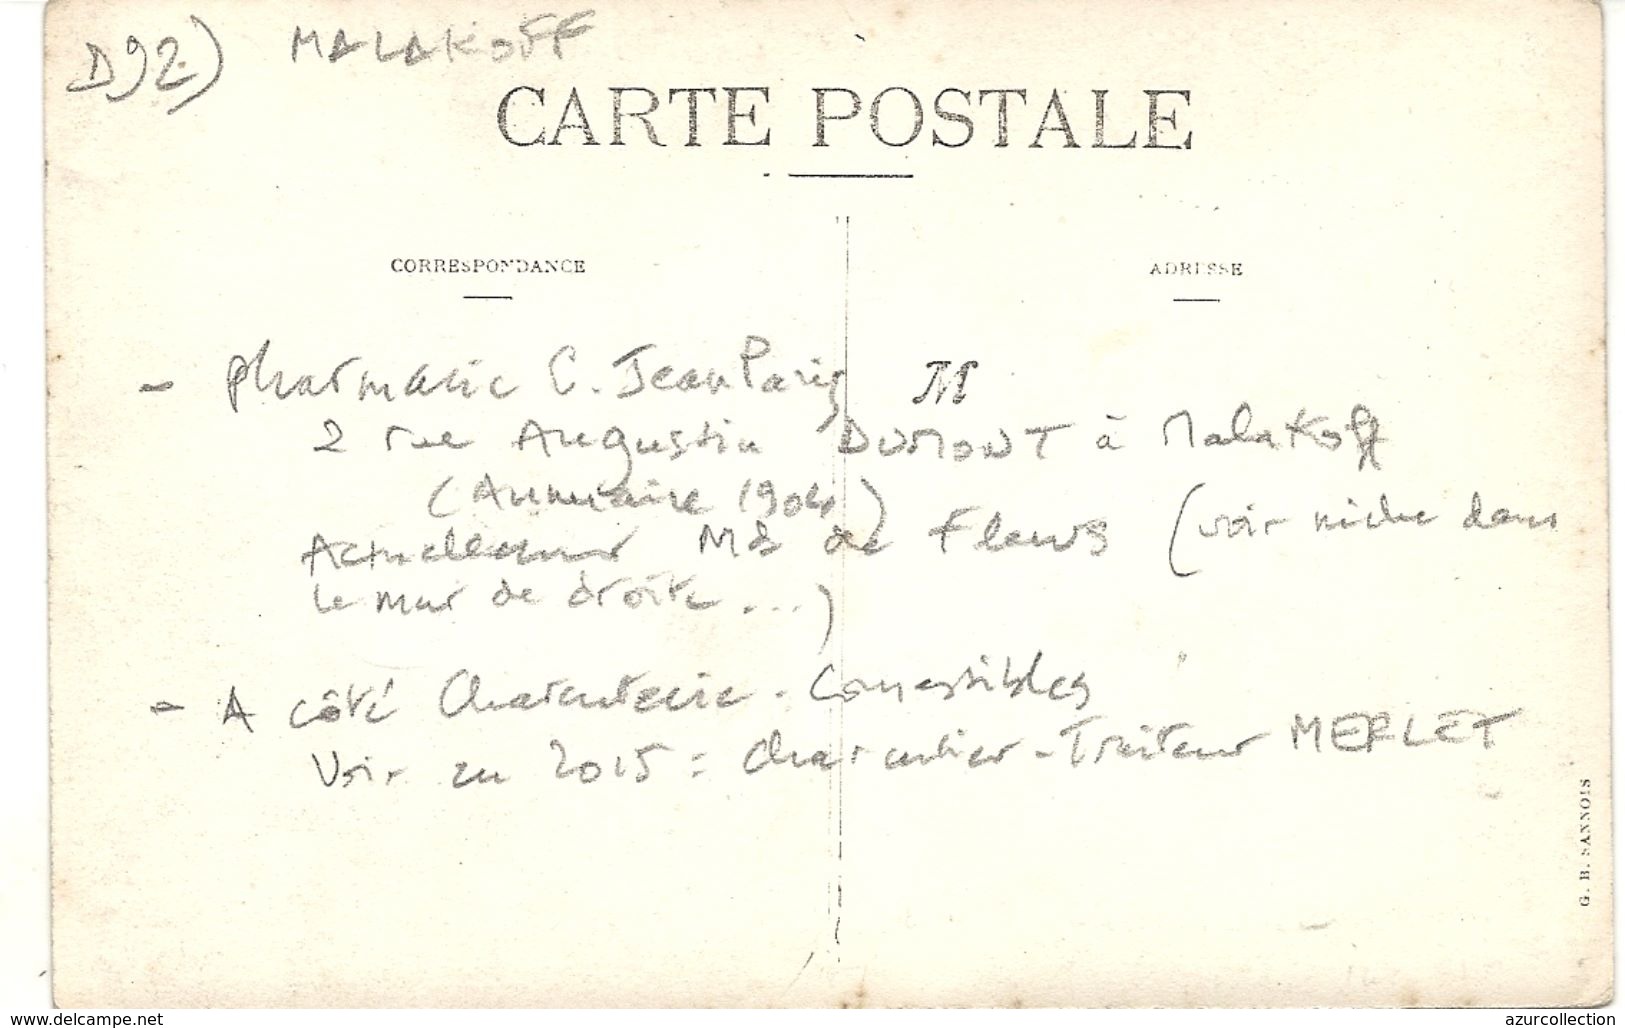 D92) MALAKOFF
CARTE POSTALE
CORRESPONDANCE
ADRESSE
- pharmacie C. Jean Paris
M
2 rue Augustin DUMONT à Malakoff
(Annuaire 1904)
Actuellement Md de Fleurs (voir niche dans
le mur de droite ...)
- A côté Charcuterie - Comestibles
Voir en 2015 = charcutier - Traiteur MERLET
G. B. SANNOIS
www.delcampe.net
azurcollection